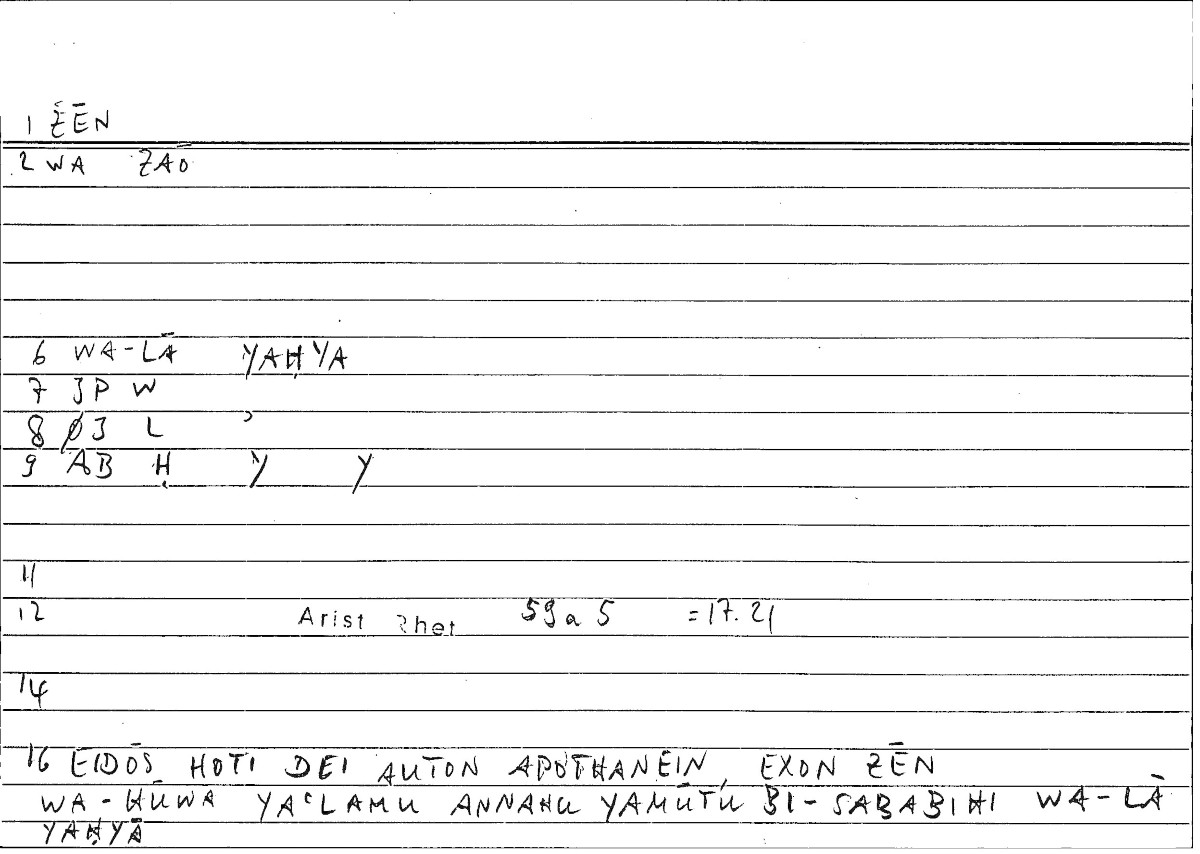 1 ZĒN
2 WA ZAŌ
6 WA-LĀ YAḤYA
7 3P W
8 Ø3 L ʾ
9 AB Ḥ Y Y
11
12 Arist Rhet 59a5 =17.21
14
16 EIDŌS HOTI DEI AUTON APOTHANEIN, EXON ZĒN
WA-HUWA YAʿLAMU ANNAHU YAMŪTU BI-SABABIHI WA-LĀ
YAḤYĀ